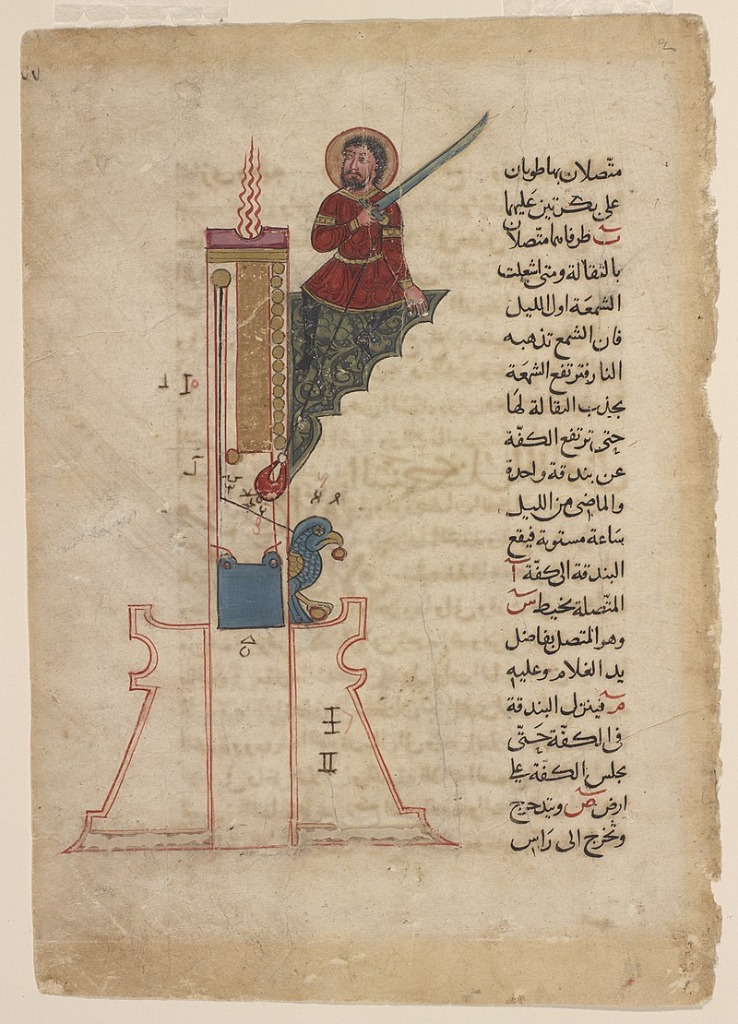 متصلان بها طوبان
على بكرتين عليهما
ت طرفاهما متصلان
بالثقالة ومتى اشعلت
الشمعة اول الليل
فان الشمع تذهبه
النار فترتفع الشمعة
بجذب الثقالة لها
حتى ترتفع الكفة
عن بندقة واحدة
والماضى من الليل
ساعة مستوية فيقع
البندقة الى كفة آ
المتصلة بخيط س
وهو المتصل بفاضل
يد الغلام وعليه
م فينزل البندقة
فى الكفة حتى
يجلس الكفة على
ارض ص ويتدحرج
وتخرج الى راس